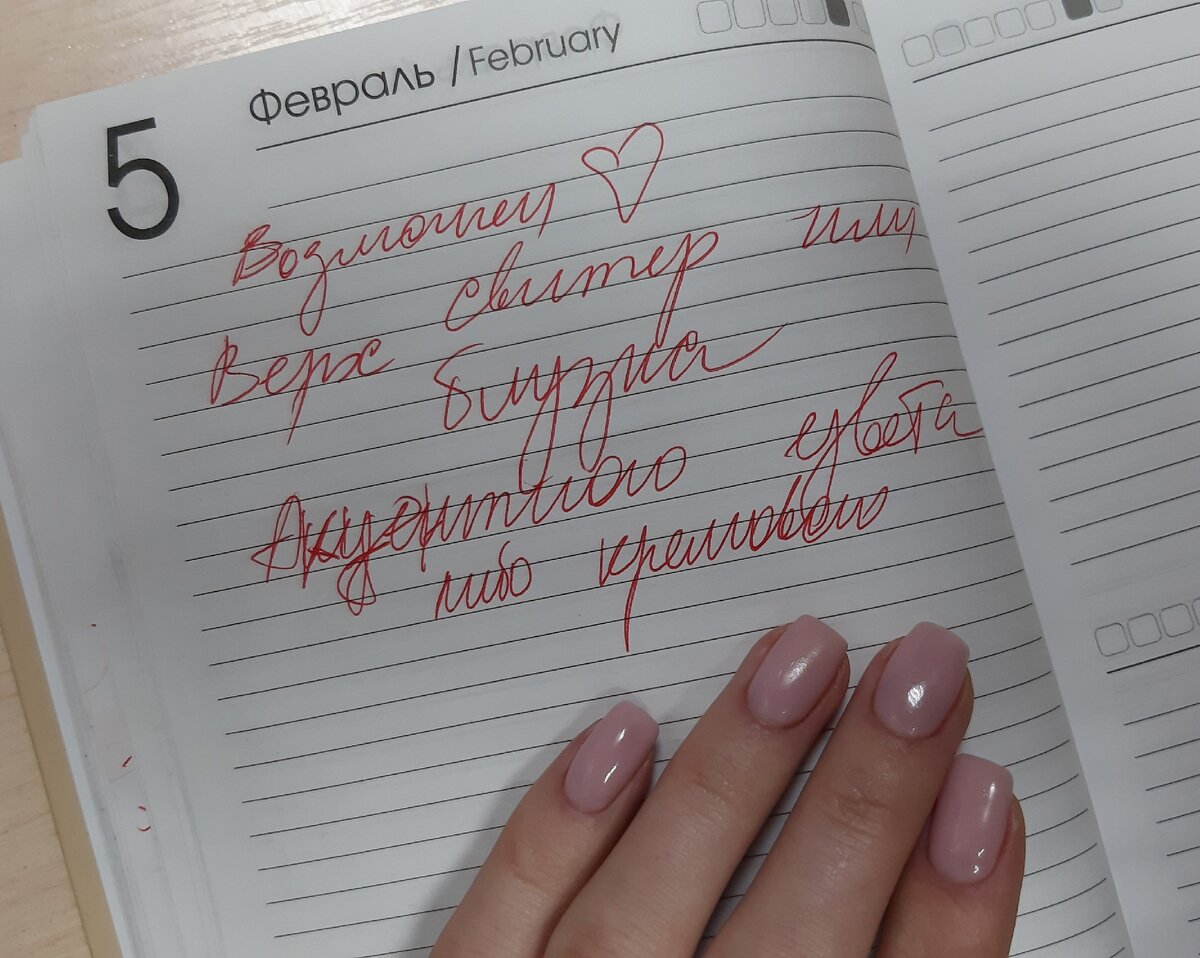 5
Февраль / February
Верх свитер или
блузка
Акцентного цвета
либо кремового